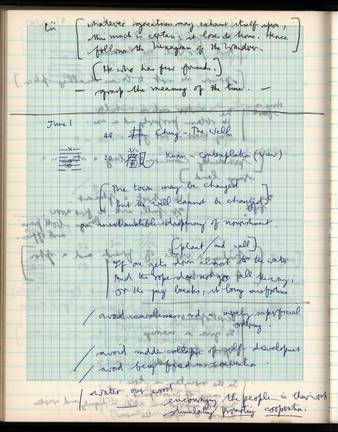 whatever operation may exhaust itself upon,
this much is certain: it lose its home. Hence
follows the hexagram of the Wanderer.
[He who has few friends.]
— grasp the meaning of the time. —
June 1
48 井 Ching - The Well
20 觀 Kuan - Contemplation (View)
[The town may be changed
but the well cannot be changed]
an inexhaustible dispensing of nourishment.
[plant / and well]
If one gets down almost to the water
And the rope does not go all the way,
Or the jug breaks, it brings misfortune
/ avoid carelessness and merely superficial
/ avoid sudden collapse of self development
/ avoid being
/ water over wood
encouraging the people in their work
promoting cooperation